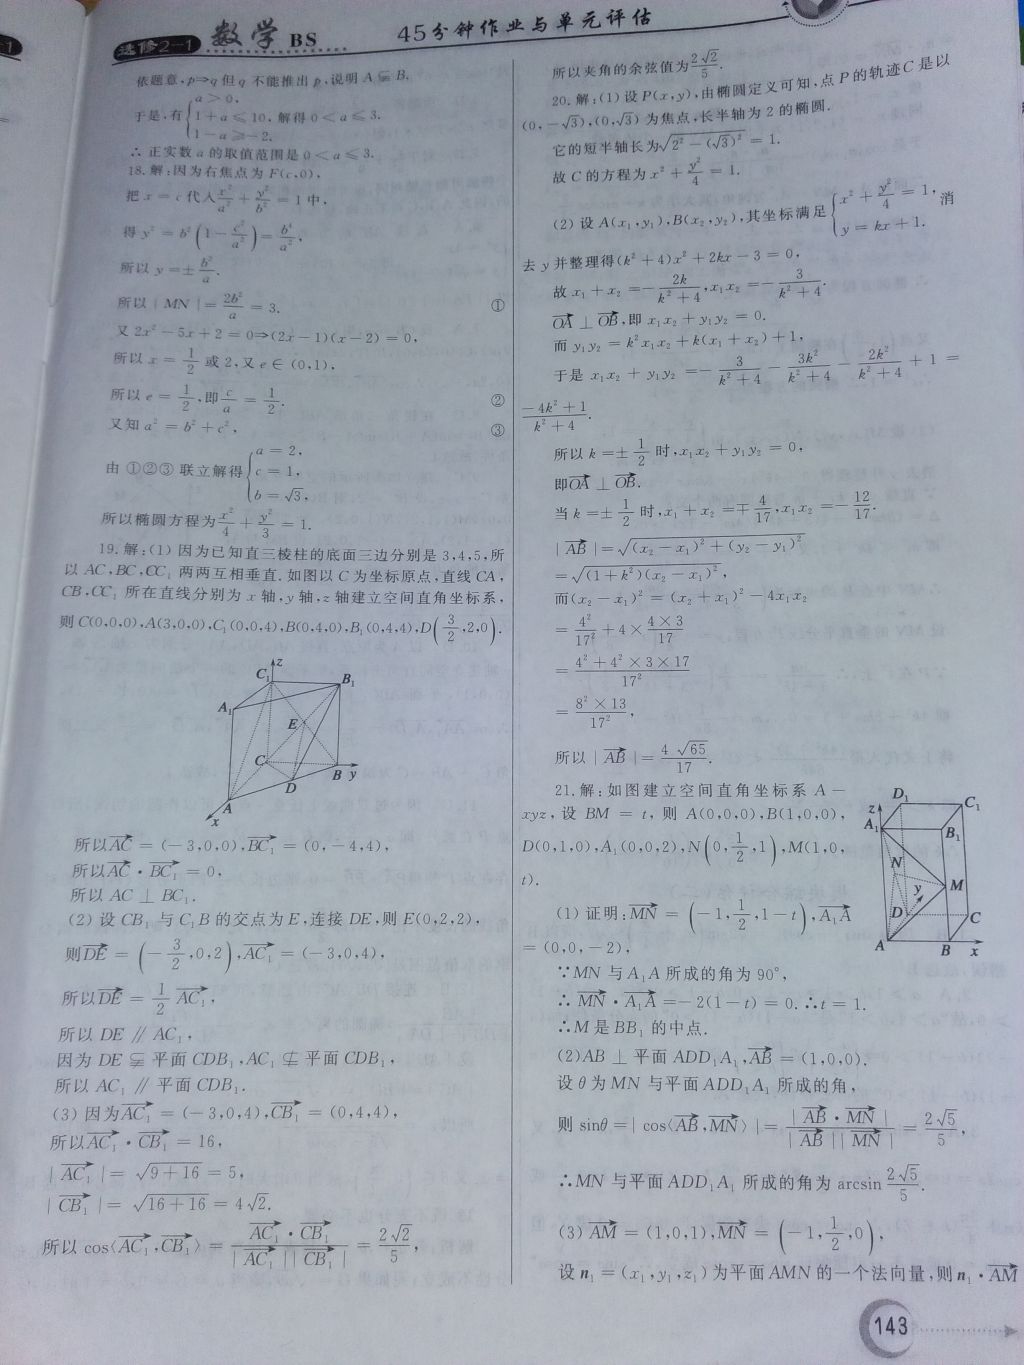 选修2-1 数学 BS 45分钟作业与单元评估
依题意,p⇒q但q不能推出p,说明A⫋B.
于是,有{a>0, 1+a⩽10, 1-a⩾-2. 解得0<a⩽3.
∴正实数a的取值范围是0<a⩽3.
18.解:因为右焦点为F(c,0),
把x=c代入x²/a²+y²/b²=1中,
得y²=b²(1-c²/a²)=b⁴/a²,
所以y=±b²/a.
所以|MN|=2b²/a=3. ①
又2x²-5x+2=0⇒(2x-1)(x-2)=0,
所以x=1/2或2,又e∈(0,1),
所以e=1/2,即c/a=1/2. ②
又知a²=b²+c², ③
由①②③联立解得{a=2, c=1, b=√3,
所以椭圆方程为x²/4+y²/3=1.
19.解:(1)因为已知直三棱柱的底面三边分别是3,4,5,所
以AC,BC,CC₁两两互相垂直.如图以C为坐标原点,直线CA,
CB,CC₁所在直线分别为x轴,y轴,z轴建立空间直角坐标系,
则C(0,0,0),A(3,0,0),C₁(0,0,4),B(0,4,0),B₁(0,4,4),D(3/2,2,0).
z
C₁
B₁
A₁
E
C
B y
D
A
x
所以AC→=(-3,0,0),BC₁→=(0,-4,4),
所以AC→·BC₁→=0,
所以AC⊥BC₁.
(2)设CB₁与C₁B的交点为E,连接DE,则E(0,2,2),
则DE→=(-3/2,0,2),AC₁→=(-3,0,4),
所以DE→=1/2AC₁→,
所以DE∥AC₁,
因为DE⫋平面CDB₁,AC₁⊈平面CDB₁,
所以AC₁∥平面CDB₁.
(3)因为AC₁→=(-3,0,4),CB₁→=(0,4,4),
所以AC₁→·CB₁→=16,
|AC₁→|=√(9+16)=5,
|CB₁→|=√(16+16)=4√2.
所以cos⟨AC₁→,CB₁→⟩=AC₁→·CB₁→/(|AC₁→||CB₁→|)=2√2/5,
所以夹角的余弦值为2√2/5.
20.解:(1)设P(x,y),由椭圆定义可知,点P的轨迹C是以
(0,-√3),(0,√3)为焦点,长半轴为2的椭圆.
它的短半轴长为√(2²-(√3)²)=1.
故C的方程为x²+y²/4=1.
(2)设A(x₁,y₁),B(x₂,y₂),其坐标满足{x²+y²/4=1, y=kx+1. 消
去y并整理得(k²+4)x²+2kx-3=0,
故x₁+x₂=-2k/(k²+4),x₁x₂=-3/(k²+4).
OA→⊥OB→,即x₁x₂+y₁y₂=0.
而y₁y₂=k²x₁x₂+k(x₁+x₂)+1,
于是x₁x₂+y₁y₂=-3/(k²+4)-3k²/(k²+4)-2k²/(k²+4)+1=
(-4k²+1)/(k²+4).
所以k=±1/2时,x₁x₂+y₁y₂=0,
即OA→⊥OB→.
当k=±1/2时,x₁+x₂=∓4/17,x₁x₂=-12/17.
|AB→|=√((x₂-x₁)²+(y₂-y₁)²)
=√((1+k²)(x₂-x₁)²),
而(x₂-x₁)²=(x₂+x₁)²-4x₁x₂
=4²/17²+4×(4×3)/17
=(4²+4²×3×17)/17²
=(8²×13)/17²,
所以|AB→|=4√65/17.
21.解:如图建立空间直角坐标系A-
xyz,设BM=t,则A(0,0,0),B(1,0,0),
D(0,1,0),A₁(0,0,2),N(0,1/2,1),M(1,0,
t).
D₁
z
C₁
A₁
B₁
N
y
M
D
C
A
B x
(1)证明:MN→=(-1,1/2,1-t),A₁A→
=(0,0,-2),
∵MN与A₁A所成的角为90°,
∴MN→·A₁A→=-2(1-t)=0.∴t=1.
∴M是BB₁的中点.
(2)AB⊥平面ADD₁A₁,AB→=(1,0,0).
设θ为MN与平面ADD₁A₁所成的角,
则sinθ=|cos⟨AB→,MN→⟩|=|AB→·MN→|/(|AB→||MN→|)=2√5/5,
∴MN与平面ADD₁A₁所成的角为arcsin2√5/5.
(3)AM→=(1,0,1),MN→=(-1,1/2,0),
设n₁=(x₁,y₁,z₁)为平面AMN的一个法向量,则n₁·AM→
143